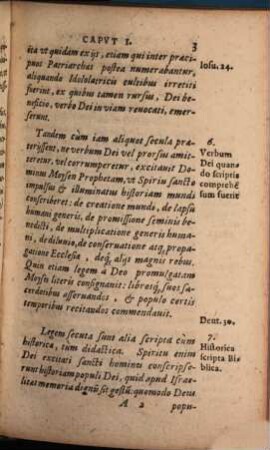 CAPVT I.
3
ita vt quidam ex ijs, etiam qui inter præci-
puos Patriarchas postea numerabantur,
aliquando Idololatricis cultibus irretiti
fuerint, ex quibus tamen rursus, Dei be-
neficio, verbo Dei in viam revocati, emer-
serunt.
Iosu. 24.
Tandem cùm iam aliquot secula præ-
terijssent, ne verbum Dei vel prorsus amit-
teretur, vel corrumperetur, excitavit Do-
minus Moysen Prophetam, vt Spiritu sancto
impulsus & illuminatus historiam mundi
conscriberet: de creatione mundi, de lapsu
humani generis, de promissione seminis be-
nedicti, de multiplicatione generis huma-
ni, de diluvio, de conservatione atq; propa-
gatione Ecclesiæ, deq; alijs magnis rebus.
Quin etiam legem à Deo promulgatam
Moyses literis consignavit: librosq; suos sa-
cerdotibus asservandos, & populo certis
temporibus recitandos commendavit.
6.
Verbum
Dei quan-
do scriptis
comprehē
sum fuerit
Deut. 30.
Legem secuta sunt alia scripta cùm
historica, tum didactica. Spiritu enim
Dei excitati sancti homines conscripse-
runt historiam populi Dei, quid apud Israe-
litas memoria dignū sit gestū: quomodo Deus
7.
Historica
scripta Bi-
blica.
A 2
popu-